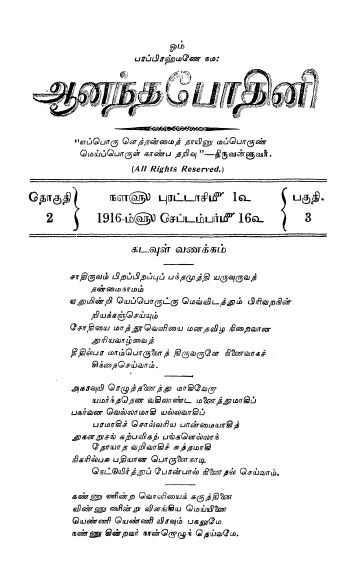 ஓம்
பரப்பிரஹ்மணே நம:
ஆனந்தபோதினி
“எப்பொரு ளெத்தன்மைத் தாயினு மப்பொருண்
மெய்ப்பொருள் காண்ப தறிவு”—திருவள்ளுவர்.
(All Rights Reserved.)
தொகுதி 2
நள௵ புரட்டாசி௴ 1௳
1916-ம்௵ செப்டம்பர்௴ 16௳
பகுதி. 3
கடவுள் வணக்கம்
சாதிகுலம் பிறப்பிறப்புப் பந்தமுத்தி யருவுருவத்
தன்மைநாமம்
ஏதுமின்றி யெப்பொருட்கு மெவ்விடத்தும் பிரிவறநின்
றியக்கஞ்செய்யும்
சோதியை மாத்தூவெளியை மனதவிழ நிறைவான
துரியவாழ்வைத்
தீதில்பர மாம்பொருளைத் திருவருளே நினைவாகச்
சிந்தைசெய்வாம்.
அகரவுயி ரெழுத்தனைத்து மாகிவேறு
யமர்ந்ததென வகிலாண்ட மனைத்துமாகிப்
பகர்வன வெல்லாமாகி யல்லவாகிப்
பரமாகிச் சொல்லரிய பான்மையாகித்
துகளறுசங் கற்பவிகற் பங்களெல்லாந்
தோயாத வறிவாகிச் சுத்தமாகி
நிகரில்பசு பதியான பொருளைநாடி
நெட்டுயிர்த்துப் பேரன்பால் நினைதல் செய்வாம்.
கண்ணு ணின்ற வொளியைக் கருத்தினை
விண்ணு ணின்று விளங்கிய மெய்யினை
யெண்ணி யெண்ணி யிரவும் பகலுமே
நண்ணு கின்றவர் நான்றொழுந் தெய்வமே.